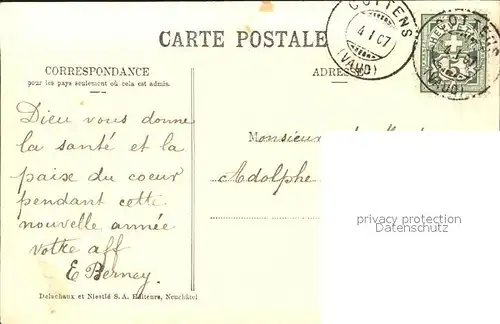 COTTENS
4 I 07
(VAUD)
COTTENS
4 I 07
(VAUD)
HELVETIA
CARTE POSTALE
CORRESPONDANCE
pour les pays seulement où cela est admis.
ADRESSE
Dieu vous donne
la santé et la
paix du coeur
pendant cette
nouvelle année
votre aff
E Berney.
Monsieur
Adolphe
privacy protection
Datenschutz
Delachaux et Niestlé S. A. Editeurs, Neuchâtel